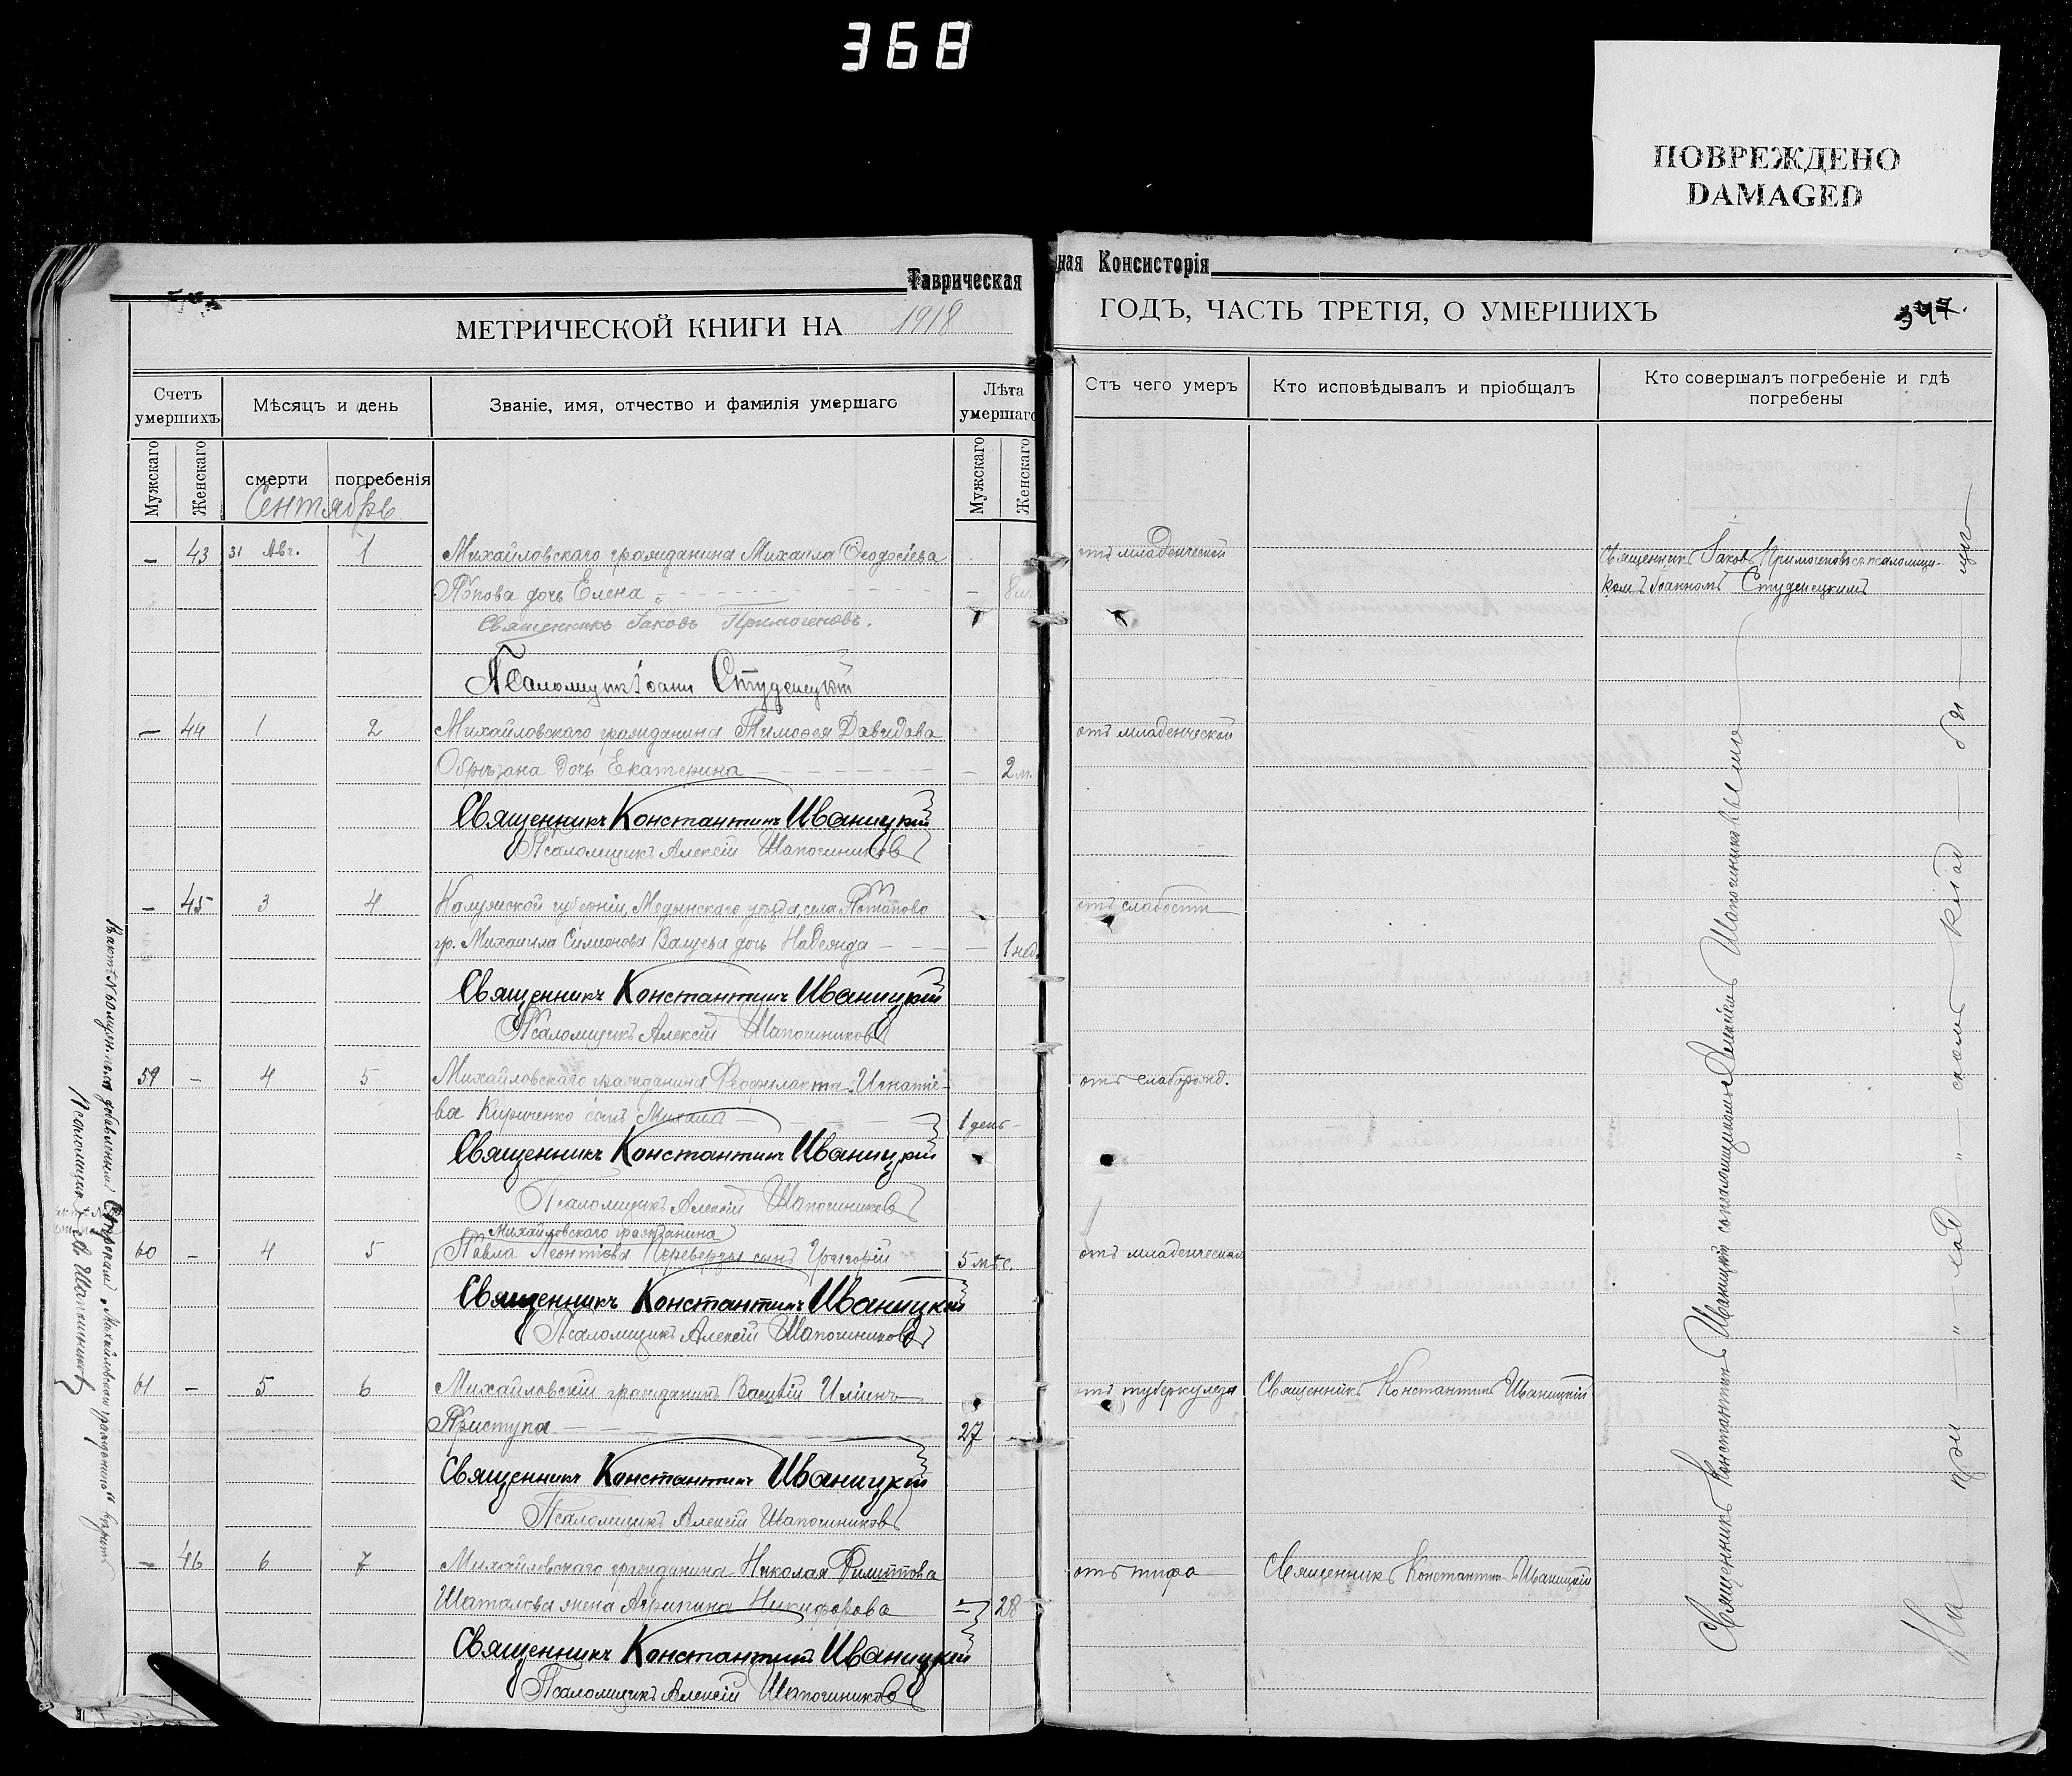 368
ПОВРЕЖДЕНО
DAMAGED
Таврическая
МЕТРИЧЕСКОЙ КНИГИ НА 1918
Счетъ умершихъ
Мѣсяцъ и день
Званіе, имя, отчество и фамилія умершаго
Лѣта умершаго
Мужскаго
Женскаго
смерти
погребенія
Мужскаго
Женскаго
Сентябрь
– 43 31 Авг. 1 Михайловскаго гражданина Михаила Ѳеодосіева
Попова дочь Елена – 8 м.
Священникъ Іаковъ Примогеновъ.
Псаломщикъ Іоаннъ Студенецкій
– 44 1 2 Михайловскаго гражданина Тимоѳея Давидова
дочь Екатерина – 2 м.
Священникъ Константинъ Иваницкій
Псаломщикъ Алексій Шапошниковъ
– 45 3 4 Калужской губерніи, Медынскаго уѣзда, села Потапово
гр. Михаила Симеонова дочь Надежда – 1 нед.
Священникъ Константинъ Иваницкій
Псаломщикъ Алексій Шапошниковъ
59 – 4 5 Михайловскаго гражданина Феофилакта Игнатіе-
ва Кириченко сынъ Михаилъ 1 день –
Священникъ Константинъ Иваницкій
Псаломщикъ Алексій Шапошниковъ
Михайловскаго гражданина
60 – 4 5 Павла Леонтіева Перевердзя сынъ Григорій 5 мѣс.
Священникъ Константинъ Иваницкій
Псаломщикъ Алексій Шапошниковъ
61 – 5 6 Михайловскій гражданинъ Василій Иліинъ
Приступа 27 –
Священникъ Константинъ Иваницкій
Псаломщикъ Алексій Шапошниковъ
– 46 6 7 Михайловскаго гражданина Николая Филиппова
Шаталова жена Агрипина Никифорова – 28
Священникъ Константинъ Иваницкій
Псаломщикъ Алексій Шапошниковъ
добавленный „Михайловскаго гражданина" вѣрить
Псаломщикъ Шапошниковъ
ная Консисторія
ГОДЪ, ЧАСТЬ ТРЕТІЯ, О УМЕРШИХЪ
347.
Отъ чего умеръ
Кто исповѣдывалъ и пріобщалъ
Кто совершалъ погребеніе и гдѣ погребены
отъ младенческой
Священникъ Іаковъ Примогеновъ съ псаломщи-
комъ Іоанномъ Студенецкимъ
отъ младенческой
отъ слабости
отъ слаборожд.
отъ младенческой
отъ туберкулеза Священникъ Константинъ Иваницкій
отъ тифа Священникъ Константинъ Иваницкій
Священникъ Константинъ Иваницкій съ псаломщикомъ Алексіемъ Шапошниковымъ
На при „ – ход „ – скомъ – клад – би – щѣ –